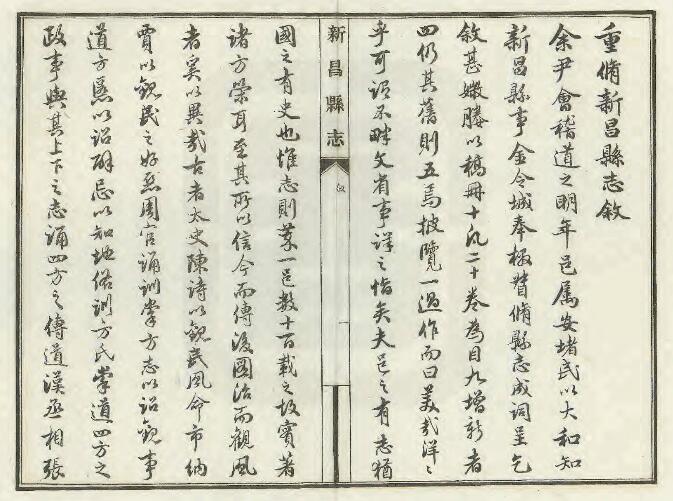 重脩新昌縣志敘
余尹會稽道之明年邑屬安堵民以大和知
新昌縣事金令城奉檄督脩縣志成詞呈乞
敘甚嫩賸以稿冊十凡二十卷為目九增新者
四仍其舊則五焉披覽一過作而曰美哉洋々
乎可謂不畔文省事詳之恉矣夫邑之有志猶
新昌縣志
敘
一
國之有史也惟志則業一邑數十百載之故實著
諸方策耳至其所以信今而傳後圖治而觀風
者奚以異哉古者太史陳詩以觀民風命市納
賈以觀民之好惡周官誦訓掌方志以詔觀事
道方慝以詔辟忌以知地俗訓方氏掌道四方之
政事與其上下之志誦四方之傳道漢丞相張